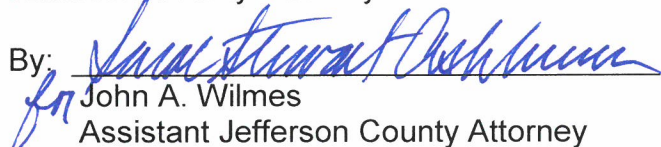 By: Stewart
for John A. Wilmes
Assistant Jefferson County Attorney